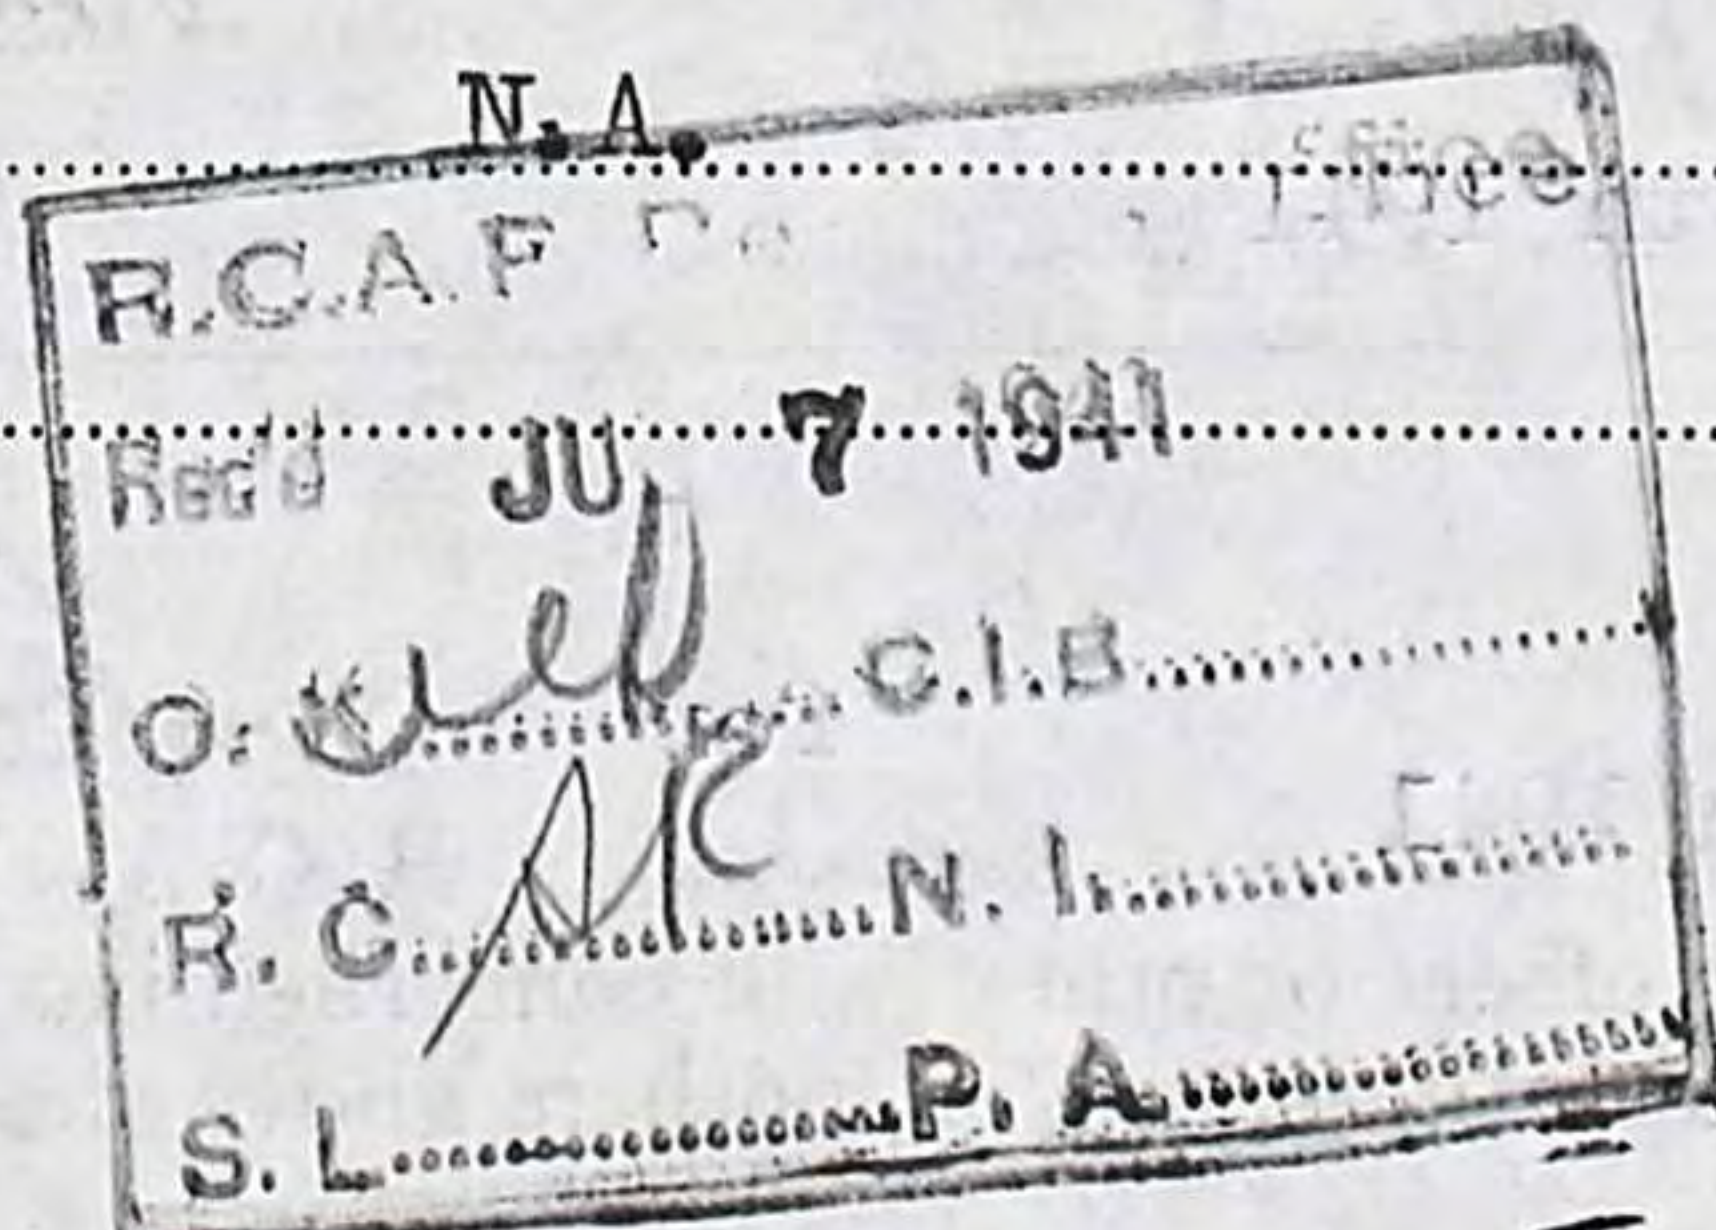 N.A.
R.C.A.F
Rec'd JU 7 1941
O. C.I.B.
R. C. N. I.
S. L. P. A.